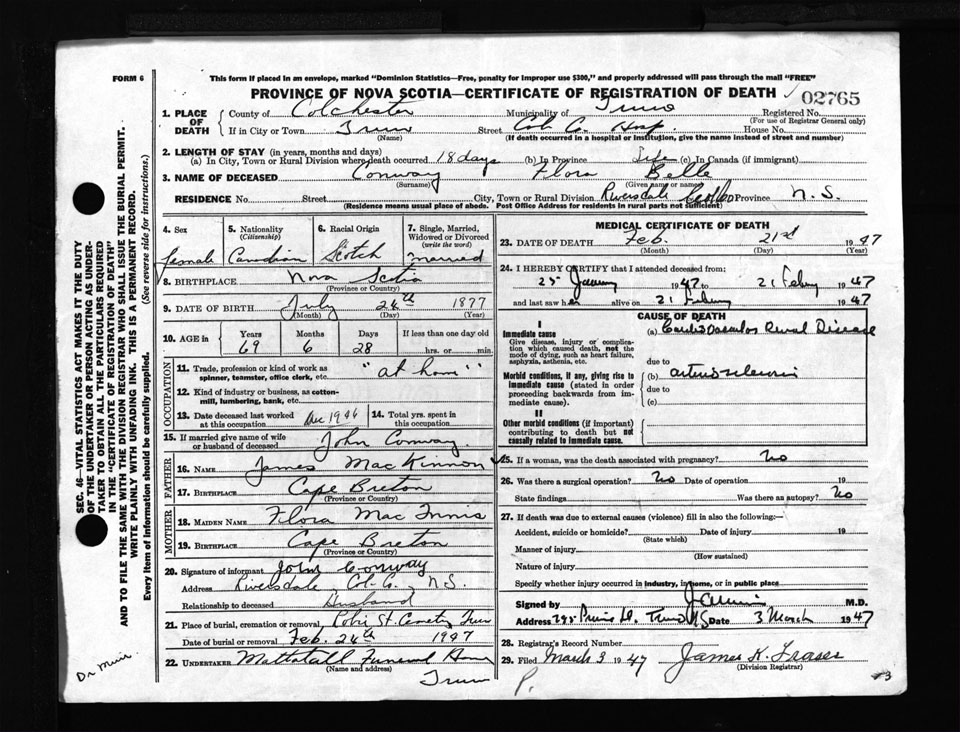 FORM 6
This form if placed in an envelope, marked "Dominion Statistics—Free, penalty for improper use $300," and properly addressed will pass through the mail "FREE"
PROVINCE OF NOVA SCOTIA—CERTIFICATE OF REGISTRATION OF DEATH
02765
1. PLACE OF DEATH
County of Colchester Municipality of Truro Registered No.
(For use of Registrar General only)
If in City or Town Truro Street Col. Co. Hosp. House No.
(Name) (If death occurred in a hospital or institution, give the name instead of street and number)
2. LENGTH OF STAY (in years, months and days)
(a) In City, Town or Rural Division where death occurred 18 days (b) In Province Life (c) In Canada (if immigrant)
3. NAME OF DECEASED Conway Flora Belle
(Surname) (Given name or names)
RESIDENCE No. Street City, Town or Rural Division Riversdale Province N.S.
(Residence means usual place of abode. Post Office Address for residents in rural parts not sufficient)
4. Sex 5. Nationality 6. Racial Origin 7. Single, Married, Widowed or Divorced
(Citizenship) (write the word)
female Canadian Scotch married
8. BIRTHPLACE Nova Scotia
(Province or Country)
9. DATE OF BIRTH July 24th 1877
(Month) (Day) (Year)
10. AGE in Years Months Days If less than one day old
69 6 28 hrs. or min.
OCCUPATION
11. Trade, profession or kind of work as spinner, teamster, office clerk, etc. "at home"
12. Kind of industry or business, as cotton-mill, lumbering, bank, etc.
13. Date deceased last worked at this occupation Dec 1946 14. Total yrs. spent in this occupation
15. If married give name of wife or husband of deceased John Conway.
FATHER
16. NAME James MacKinnon
17. BIRTHPLACE Cape Breton
(Province or Country)
MOTHER
18. MAIDEN NAME Flora MacInnis
19. BIRTHPLACE Cape Breton
(Province or Country)
20. Signature of informant John Conway
Address Riversdale Col. Co. N.S.
Relationship to deceased Husband
21. Place of burial, cremation or removal Robie St. Cemetery Truro
Date of burial or removal Feb. 24th 1947
22. UNDERTAKER Mattatall Funeral Home
(Name and address)
Truro
MEDICAL CERTIFICATE OF DEATH
23. DATE OF DEATH Feb. 21st 1947
(Month) (Day) (Year)
24. I HEREBY CERTIFY that I attended deceased from:
25 January 1947 to 21 February 1947
and last saw her alive on 21 February 1947
CAUSE OF DEATH
I
Immediate cause (a) Cardiovascular Renal Disease
Give disease, injury or complication which caused death, not the mode of dying, such as heart failure, asphyxia, asthenia, etc.
due to
Morbid conditions, if any, giving rise to immediate cause (stated in order proceeding backwards from immediate cause).
(b) arteriosclerosis
due to
(c)
II
Other morbid conditions (if important) contributing to death but not causally related to immediate cause.
25. If a woman, was the death associated with pregnancy? No
26. Was there a surgical operation? No Date of operation 19
State findings Was there an autopsy? No
27. If death was due to external causes (violence) fill in also the following:—
Accident, suicide or homicide? Date of injury 19
(State which)
Manner of injury
(How sustained)
Nature of injury
Specify whether injury occurred in industry, in home, or in public place
Signed by M.D.
Address 295 Prince St. Truro NS Date 3 March 1947
28. Registrar's Record Number
29. Filed March 3 1947 James K. Fraser
(Division Registrar)
P.
3
SEC. 46—VITAL STATISTICS ACT MAKES IT THE DUTY
OF THE UNDERTAKER OR PERSON ACTING AS UNDER-
TAKER TO OBTAIN ALL THE PARTICULARS REQUIRED
IN THE "CERTIFICATE OF REGISTRATION OF DEATH"
AND TO FILE THE SAME WITH THE DIVISION REGISTRAR WHO SHALL ISSUE THE BURIAL PERMIT.
WRITE PLAINLY WITH UNFADING INK. THIS IS A PERMANENT RECORD.
Every item of information should be carefully supplied. (See reverse side for instructions.)
Dr Muir.